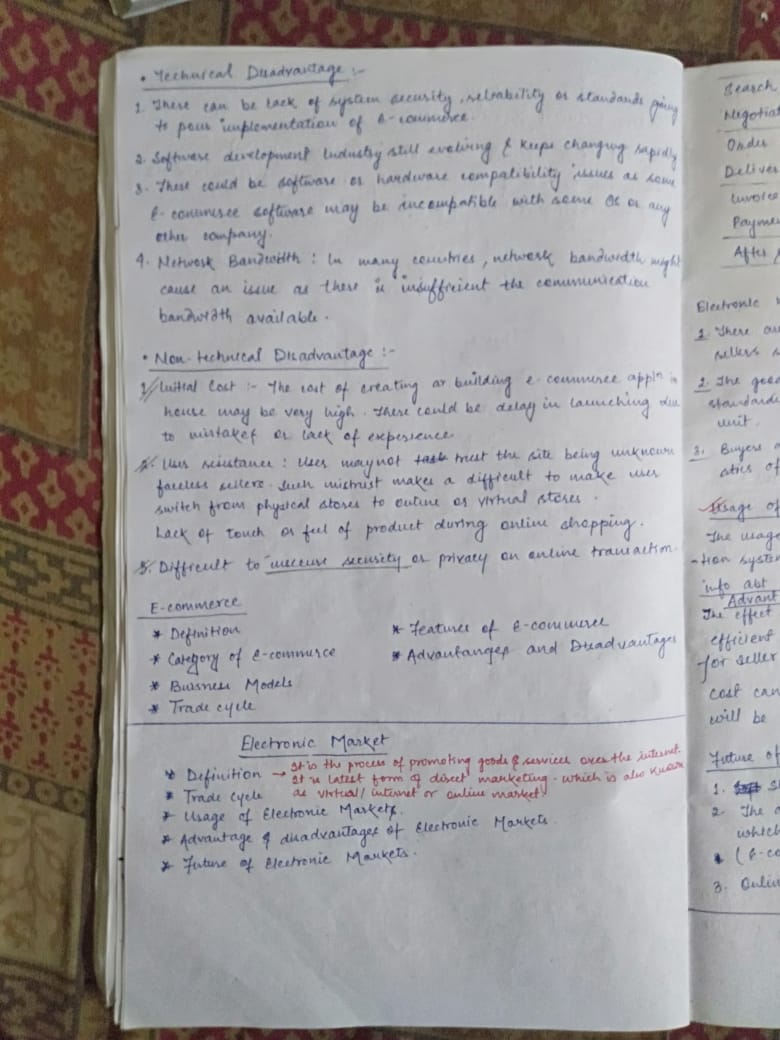 • Technical Disadvantage :-
1. There can be lack of system security, reliability or standards going
to poor implementation of e-commerce.
2. Software development Industry still evolving & keeps changing rapidly
3. There could be software or hardware compatibility issues as some
E-commerce software may be incompatible with some OS or any
other company.
4. Network Bandwidth : In many countries, network bandwidth might
cause an issue as there is insufficient the communication
bandwidth available.
• Non-technical Disadvantage :-
1. Initial Cost :- The cost of creating or building e-commerce applⁿ in
house may be very high. There could be delay in launching due
to mistakes or lack of experience
2. User resistance : User may not trust the site being unknown
faceless sellers. Such mistrust makes a difficult to make user
switch from physical stores to online or virtual stores.
Lack of touch or feel of product during online shopping.
3. Difficult to security or privacy on online transaction.
E-commerce
* Definition
* Category of E-commerce
* Buisness Models
* Trade cycle
* Features of E-commerce
* Advantanges and Disadvantages
Electronic Market
* Definition → It is the process of promoting goods & services over the internet.
It is latest form of direct marketing. which is also known
as virtual/internet or online market
* Trade cycle
* Usage of Electronic Markets.
* Advantage & disadvantages of Electronic Markets.
* Future of Electronic Markets.
Search
Negotiat
Order
Deliver
Invoice
Payme
After
Electronic
1. There a
sellers
2. The goo
standard
unit.
3. Buyers
of
Usage of
The usage
-tion system
info abt
Advant
The effect
efficient
for seller
cost can
will be
Future of
1.
2. The
which
(E-co
3. Onlin